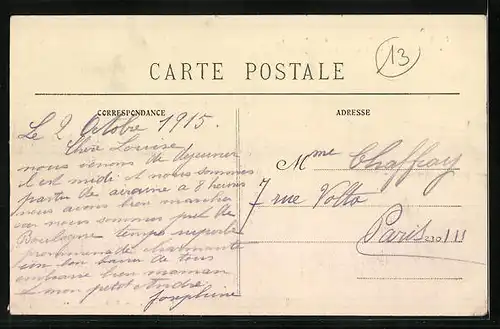 13
CARTE POSTALE
CORRESPONDANCE
ADRESSE
Le 2 Octobre 1915.
Chère Louise
nous venons de dejeuner
il est midi et nous sommes
partie de airaine a 8 heures
nous avons bien marcher
car nous sommes pret de
Boulogne temps superbe
promenade charmante
un bon baiser de tous
embrasse bien maman
& mon petit André
Josephine
Mme Chaffray
7 rue Volta
Paris III